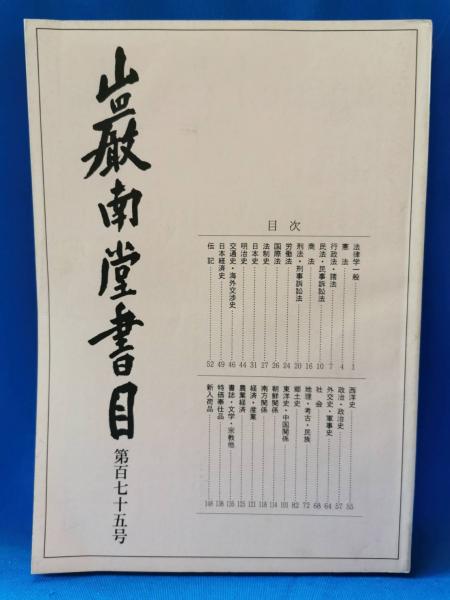 巌南堂書目
第百七十五号
目次
法律学一般 1
憲法 4
行政法・諸法 7
民法・民事訴訟法 10
商法 16
刑法・刑事訴訟法 20
労働法 24
国際法 26
法制史 27
日本史 31
明治史 44
交通史・海外交渉史 46
日本経済史 49
伝記 52
西洋史 55
政治・政治史 57
外交史・軍事史 64
社会 68
地理・考古・民族 72
郷土史 82
東洋史・中国関係 101
朝鮮関係 114
南方関係 118
経済・産業 121
農業経済 125
書誌・文学・宗教他 135
特価奉仕品 138
新入荷品 148